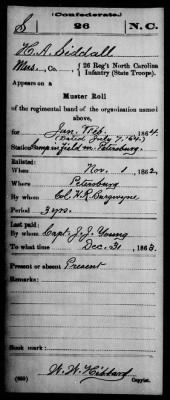 (Confederate.)
S 26 N.C.
H. A. Siddall
Mus., Co. , 26 Reg't North Carolina
Infantry (State Troops).
Appears on a
Muster Roll
of the regimental band of the organization named
above,
for Jan. & Feb., 1864.
(Dated July 7, 1864)
Station Camp in Field nr. Petersburg
Enlisted:
When Nov. 1, 1862
Where Petersburg
By whom Col. H. R. Burgwyne
Period 3 yrs.
Last paid:
By whom Capt. J. J. Young
To what time Dec. 31, 1863.
Present or absent Present
Remarks:
Book mark:
W. W. Hibbard
(660) Copyist.